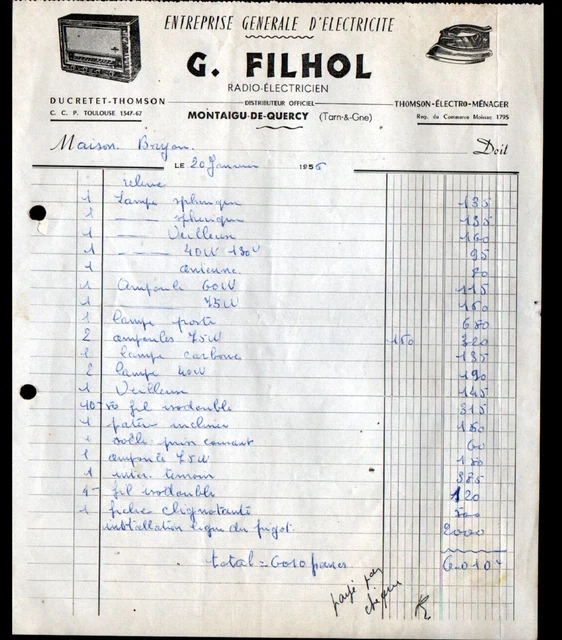 ENTREPRISE GENERALE D'ELECTRICITE
G. FILHOL
RADIO-ÉLECTRICIEN
DUCRETET-THOMSON
DISTRIBUTEUR OFFICIEL
THOMSON-ÉLECTRO-MÉNAGER
C. C. P. TOULOUSE 1547-67
MONTAIGU-DE-QUERCY (Tarn-&-Gne)
Reg. du Commerce Moissac 1795
Maison Doit
LE 20 Janvier 1956
releve
1 lampe spherique 135
1 —— spherique 135
1 —— Veilleuse 160
1 —— 40W 130V 95
1 —— antenne 80
1 Ampoule 60W 115
1 —— 75W 160
1 lampe poste 680
2 ampoules 75W 160 320
1 lampe carbone 135
2 lampe 40W 190
1 Veilleuse 145
10 fil isodouble 315
1 inclinée 180
1 courant 60
1 ampoule 75W 160
1 inter. temoin 385
4 fil isodouble 120
1 fiches clignotante 500
installation ligne du 2000
total = 6010 francs 6.010
payé par
chèque